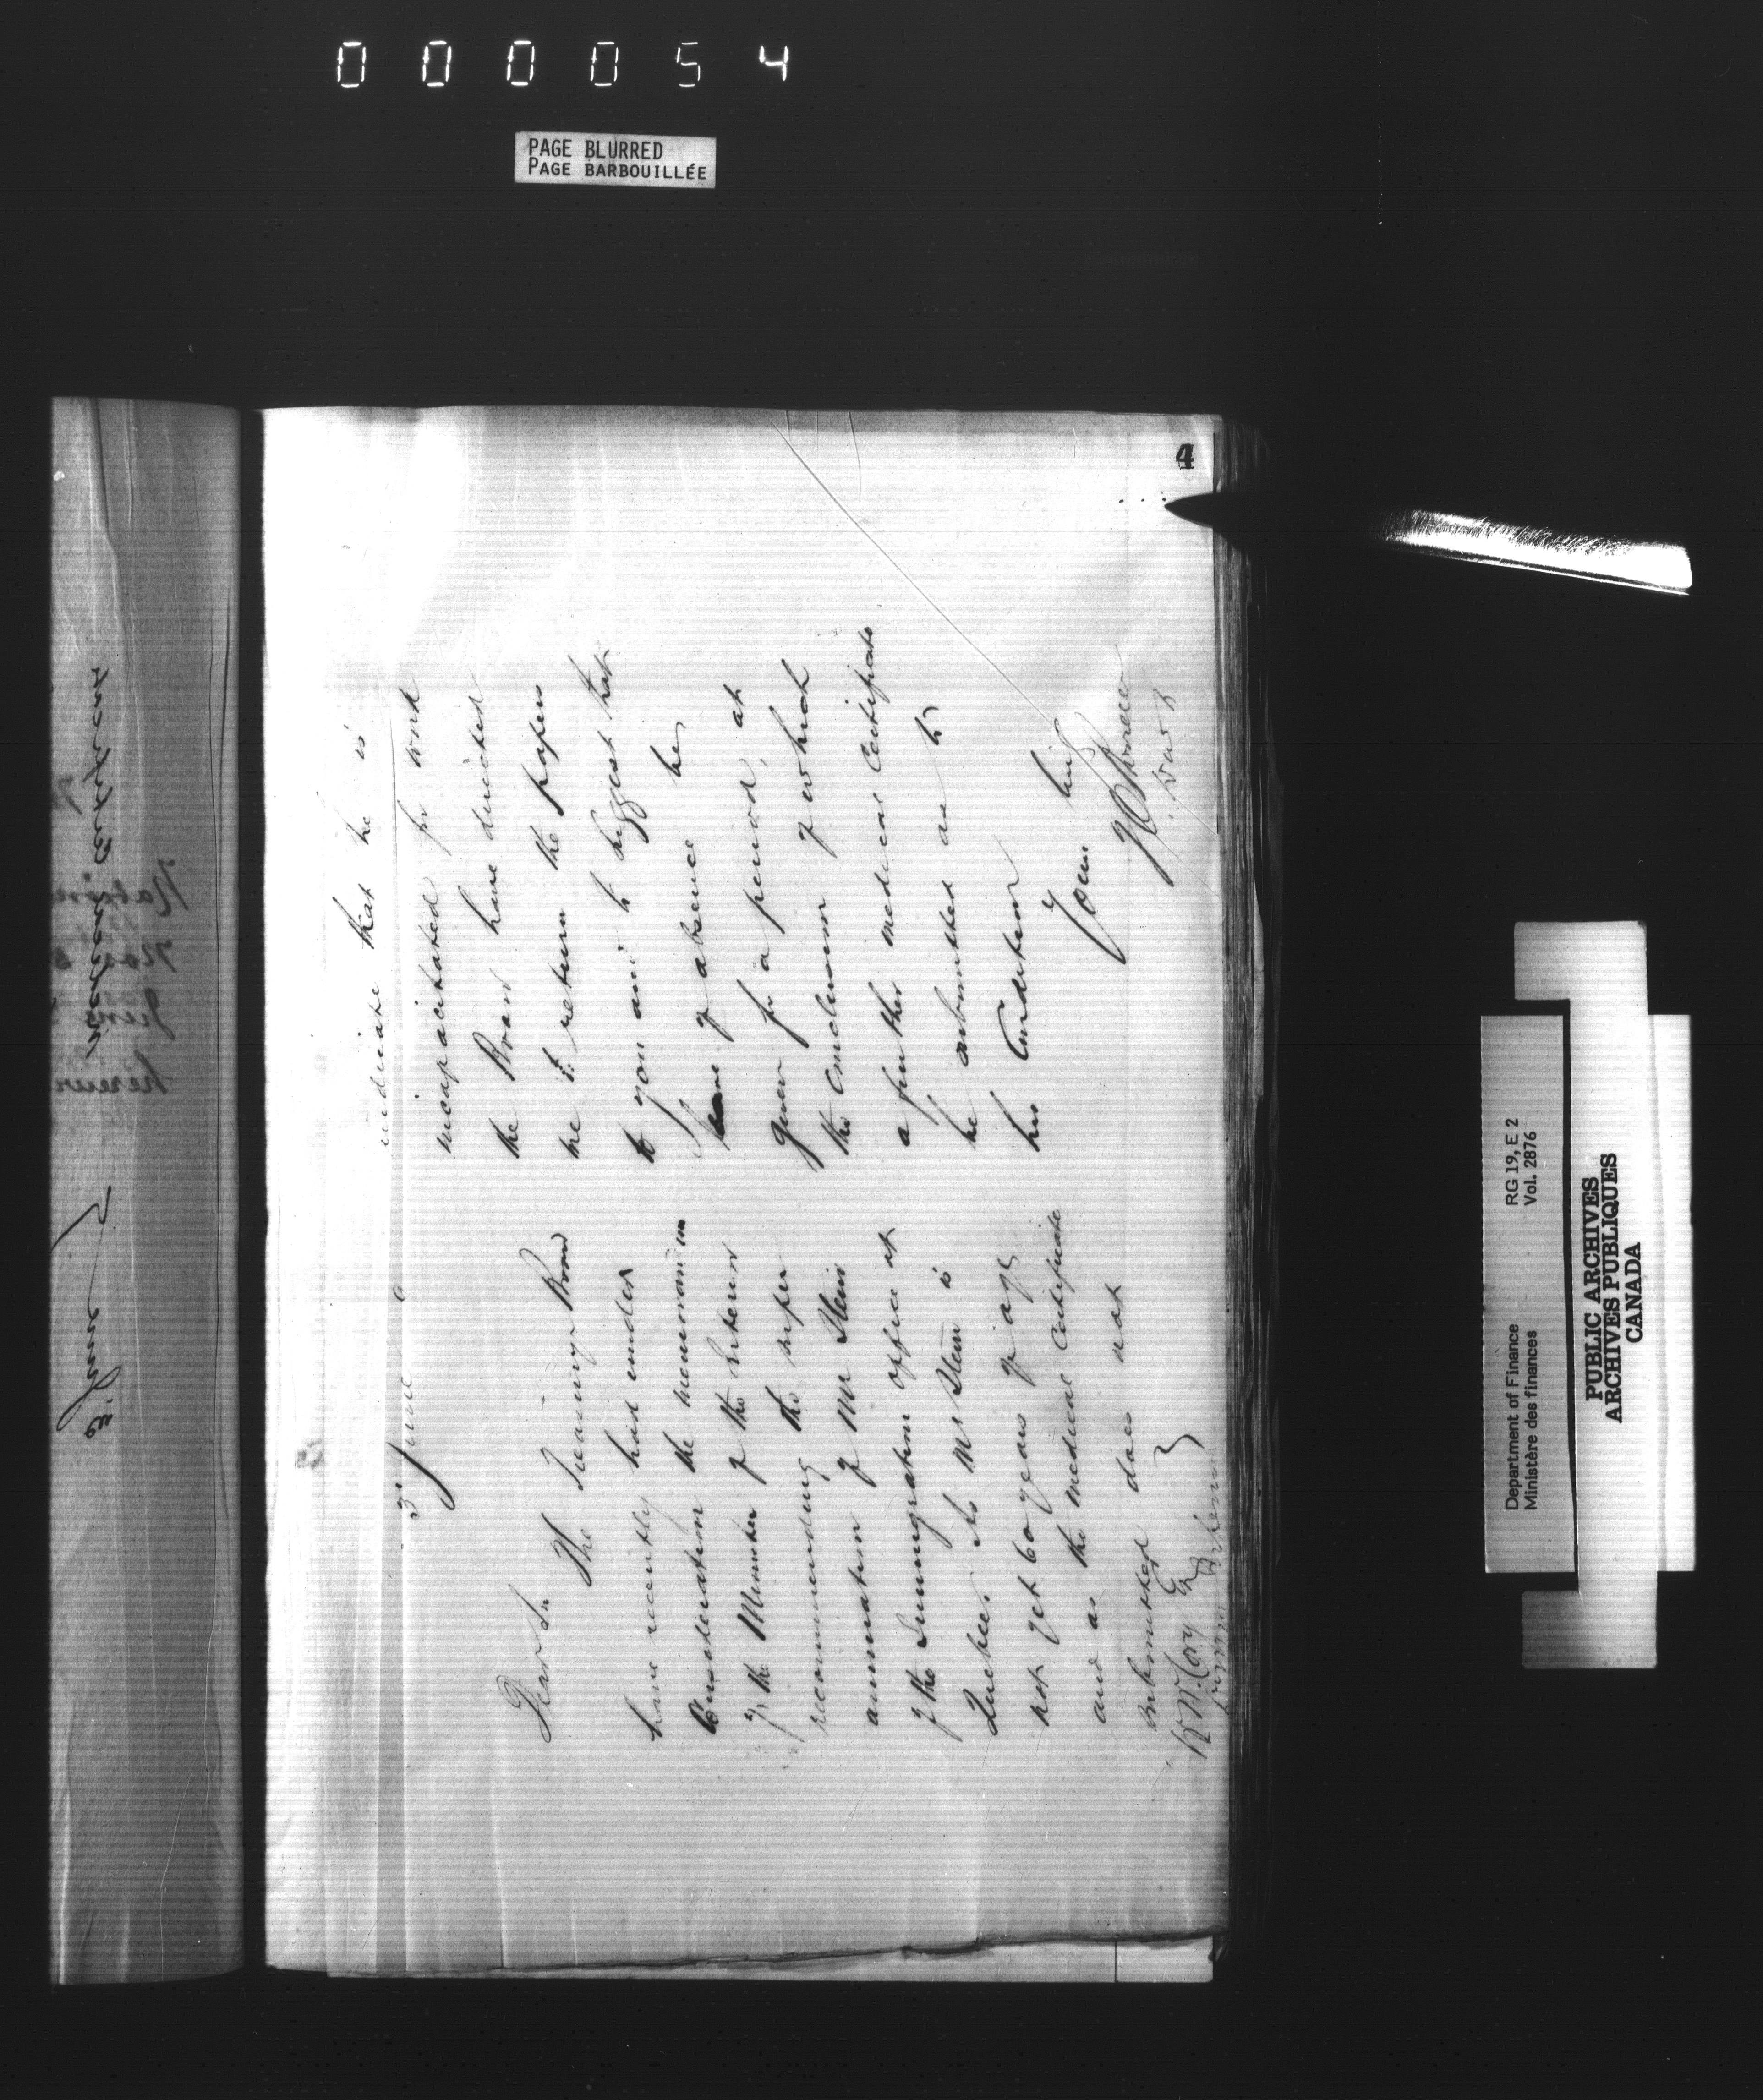 000054
PAGE BLURRED
PAGE BARBOUILLÉE
4
3 June
Dear Sir
The Treasury Board
have recently had under
Consideration the memorandum
of the Minister of the Interior
recommending the super
annuation of Mr Stein
of the Immigration office at
Quebec. As Mr Stein is
not yet 60 years of age
and as the medical Certificate
submitted does not
W W Cory Esq
Interior
indicate that he is
incapacitated for work
the Board have directed
me to return the papers
to you and to suggest that
leave of absence be
given for a period, at
the conclusion of which
a further medical Certificate
be submitted as to
his Condition
Yours truly
3 June
RG 19, E 2
Vol. 2876
Department of Finance
Ministère des finances
PUBLIC ARCHIVES
ARCHIVES PUBLIQUES
CANADA